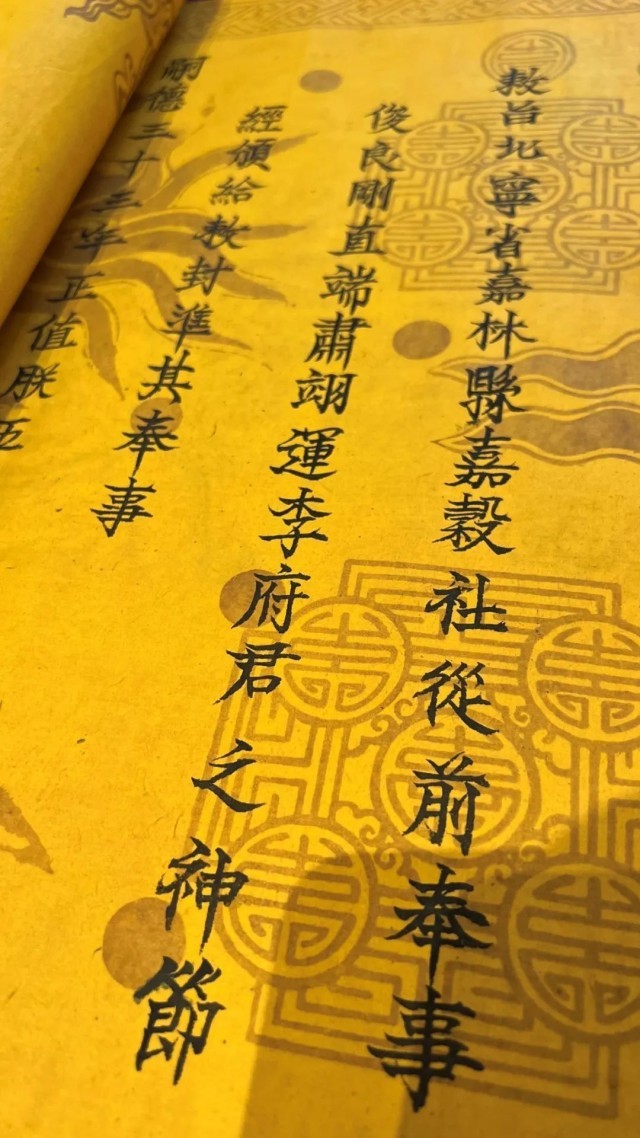 敕旨北寧省嘉林縣嘉穀社從前奉事
俊良剛直端肅翊運李府君之神節
經頒給敕封準其奉事
嗣德三十三年正值朕五